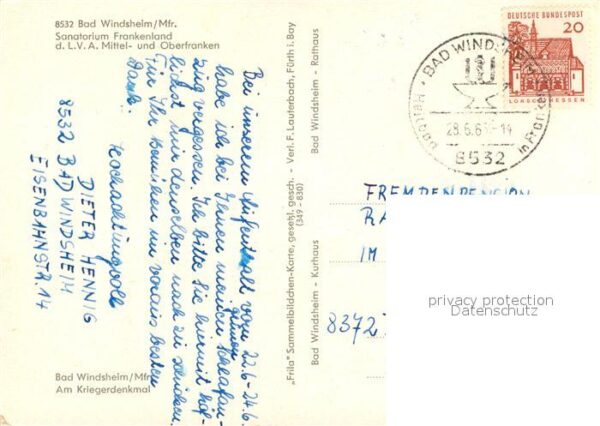 8532 Bad Windsheim/Mfr.
Sanatorium Frankenland
d. L.V.A. Mittel- und Oberfranken
Bei unserem Aufenthalt vom 22.6-24.6.
habe ich bei Ihnen meinen grünen Schlafan-
zug vergessen. Ich bitte Sie hiermit höf-
lichst mir denselben nach zu senden.
Für Ihr Bemühen im voraus besten
Dank.
Hochachtungsvoll
DIETER HENNIG
8532 BAD WINDSHEIM
EISENBAHNSTR. 14
Bad Windsheim/Mfr.
Am Kriegerdenkmal
„Frila" Sammelbildchen-Karte, gesetzl. gesch. - Verl. F. Lauterbach, Fürth i. Bay
(349 - 830)
Bad Windsheim - Kurhaus
Bad Windsheim - Rathaus
DEUTSCHE BUNDESPOST
20
LORSCH/HESSEN
BAD WINDSHEIM
Heilbad
in Franken
8532
FREMDENPENSION
IM
8372
privacy protection
Datenschutz